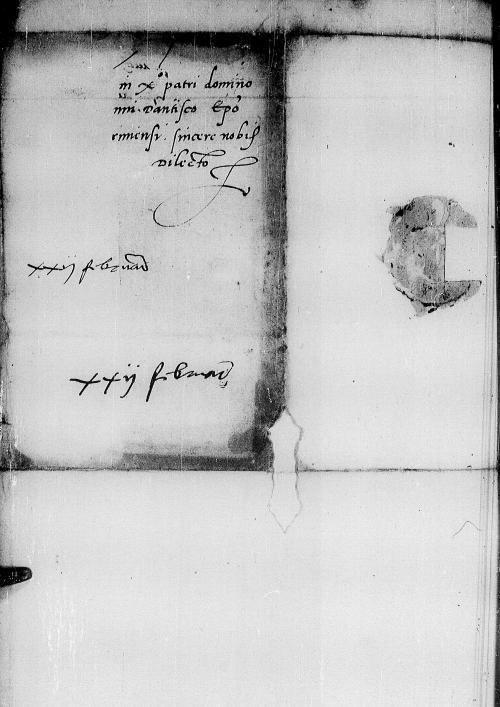 in xo patri domino
nni Dantisco Epo
rmiensi . sincere nobis
Dilecto
xxij februarii
xxij februarii